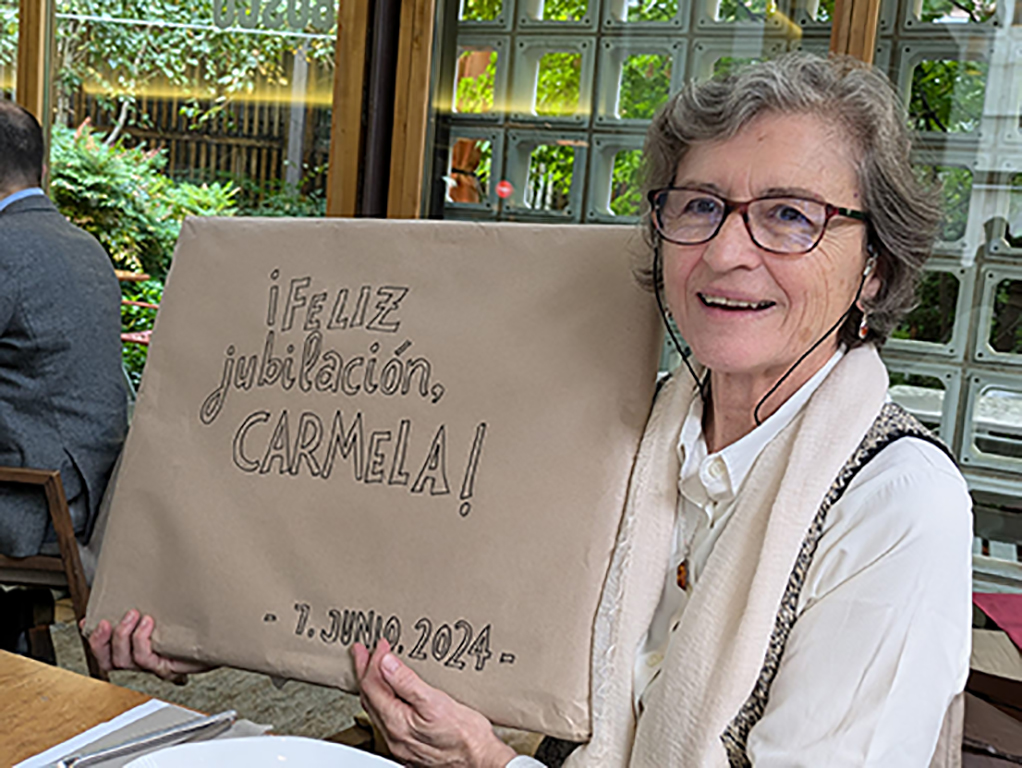 ¡FELIZ
jubilación,
CARMELA!
- 7. JUNIO. 2024 -